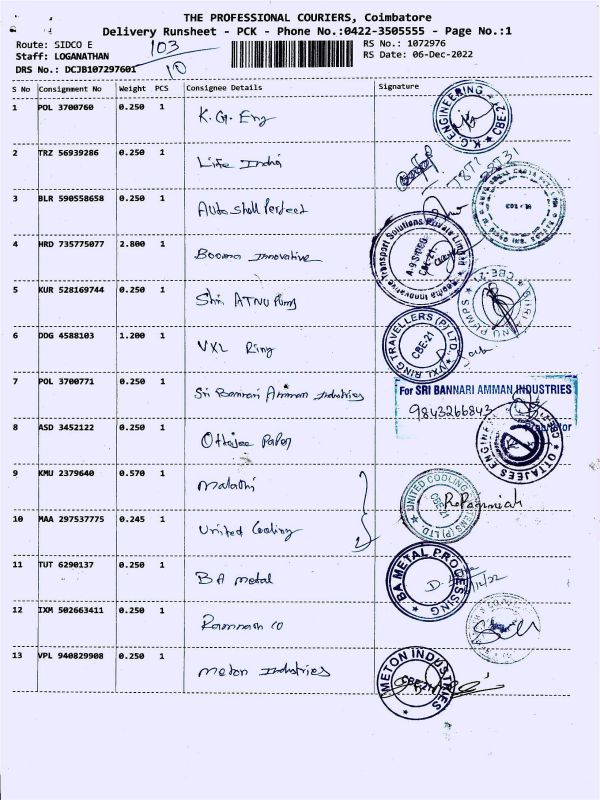 THE PROFESSIONAL COURIERS, Coimbatore
Delivery Runsheet - PCK - Phone No.:0422-3505555 - Page No.:1
Route: SIDCO E 103 RS No.: 1072976
Staff: LOGANATHAN RS Date: 06-Dec-2022
DRS No.: DCJB107297601 10
S No Consignment No Weight PCS Consignee Details Signature
1 POL 3700760 0.250 1 K.G. Eng K.G. ENGINEERING CBE-2
2 TRZ 56939286 0.250 1 Life India
3 BLR 590558658 0.250 1 Auto shell Perfect
4 HRD 735775077 2.800 1 Booma Innovative Booma Innovative Transport Solutions Private Limited CBE-21
5 KUR 528169744 0.250 1 Shri ATNU Pump PUMPS CBE-2
6 DDG 4588103 1.200 1 VXL Ring VXL RING TRAVELLERS (P) LTD., CBE-21
7 POL 3700771 0.250 1 Sri Bannari Amman Industries For SRI BANNARI AMMAN INDUSTRIES
9843266843
Proprietor
8 ASD 3452122 0.250 1 Ottajee Paper OTTAJEES
9 KMU 2379640 0.570 1 Malathi UNITED COOLING SYSTEMS (P) LTD. CBE-21
10 MAA 297537775 0.245 1 United Cooling
11 TUT 6290137 0.250 1 BA metal BA METAL PROCESSING
12 IXM 502663411 0.250 1
13 VPL 940829908 0.250 1 Meton Industries METON INDUSTRIES CBE-21